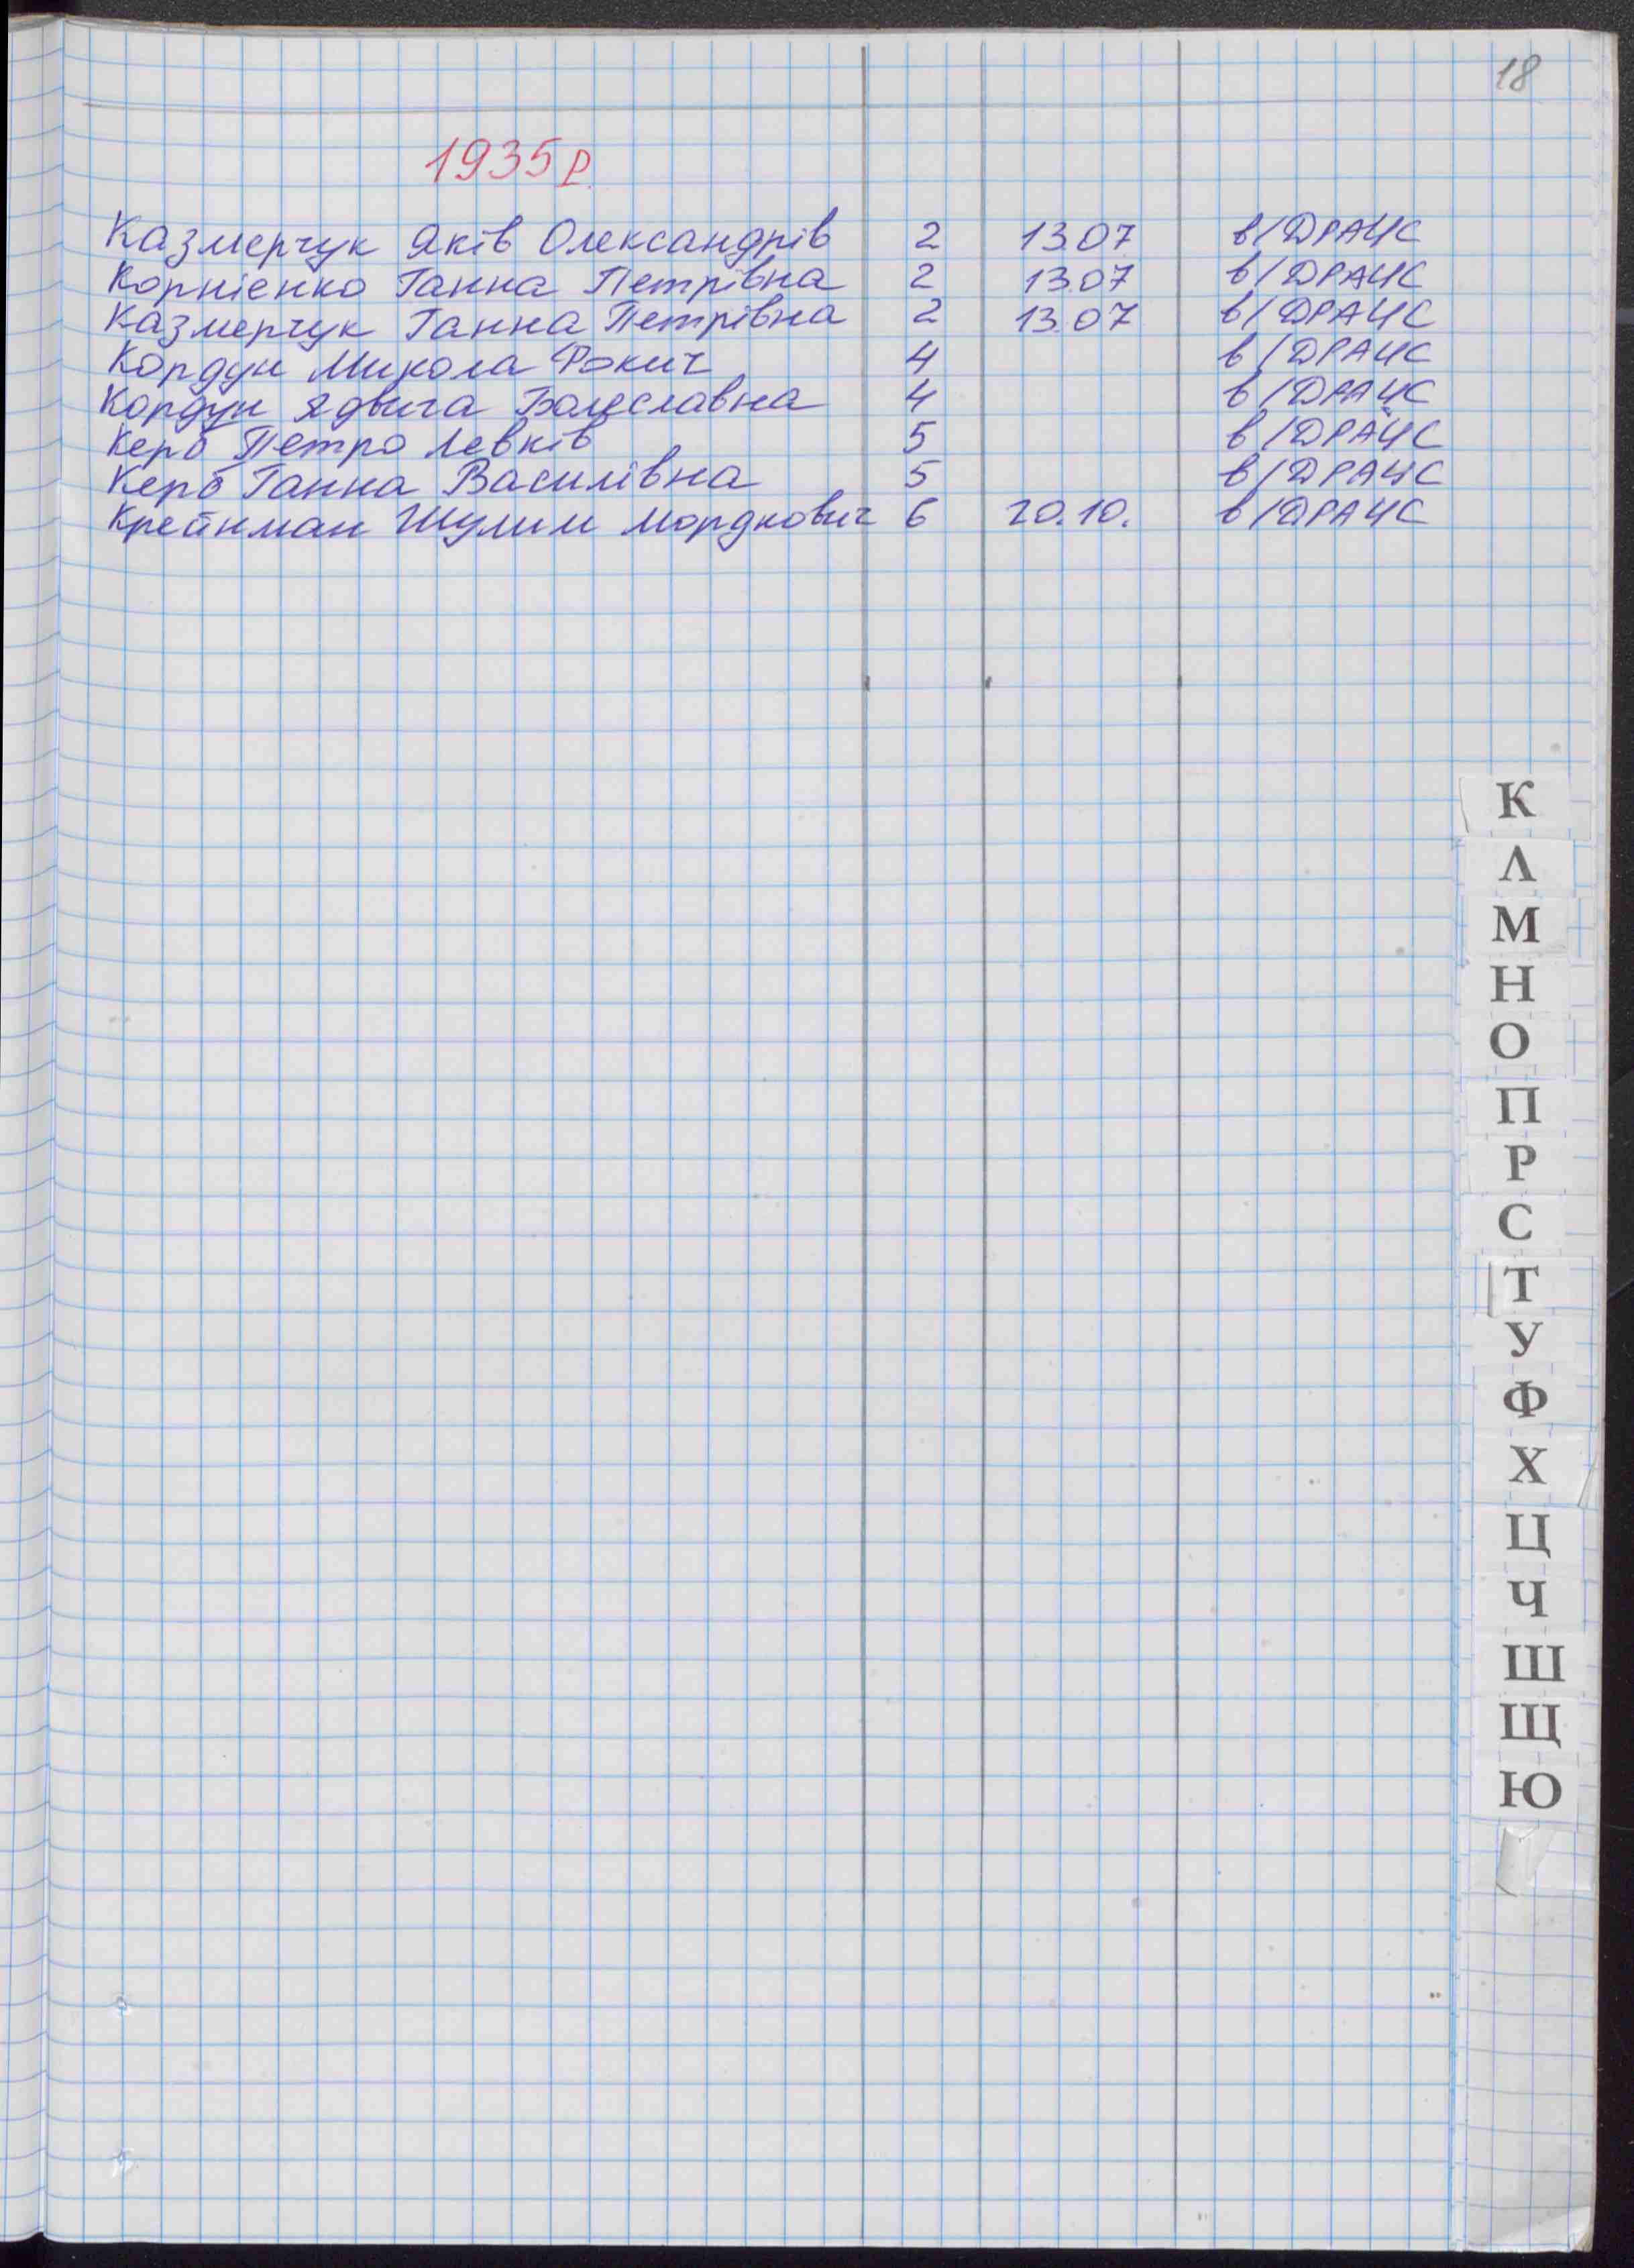 18
1935 р.
Казмерчук Яків Олександрів 2 13.07 в/ДРАЦС
Корнієнко Ганна Петрівна 2 13.07 в/ДРАЦС
Казмерчук Ганна Петрівна 2 13.07 в/ДРАЦС
Кордун Микола Фокич 4 в/ДРАЦС
Кордун Ядвига Болеславна 4 в/ДРАЦС
Керб Петро Левків 5 в/ДРАЦС
Керб Ганна Василівна 5 в/ДРАЦС
Крейнман Шулим Мордкович 6 20.10. в/ДРАЦС
К
Л
М
Н
О
П
Р
С
Т
У
Ф
Х
Ц
Ч
Ш
Щ
Ю